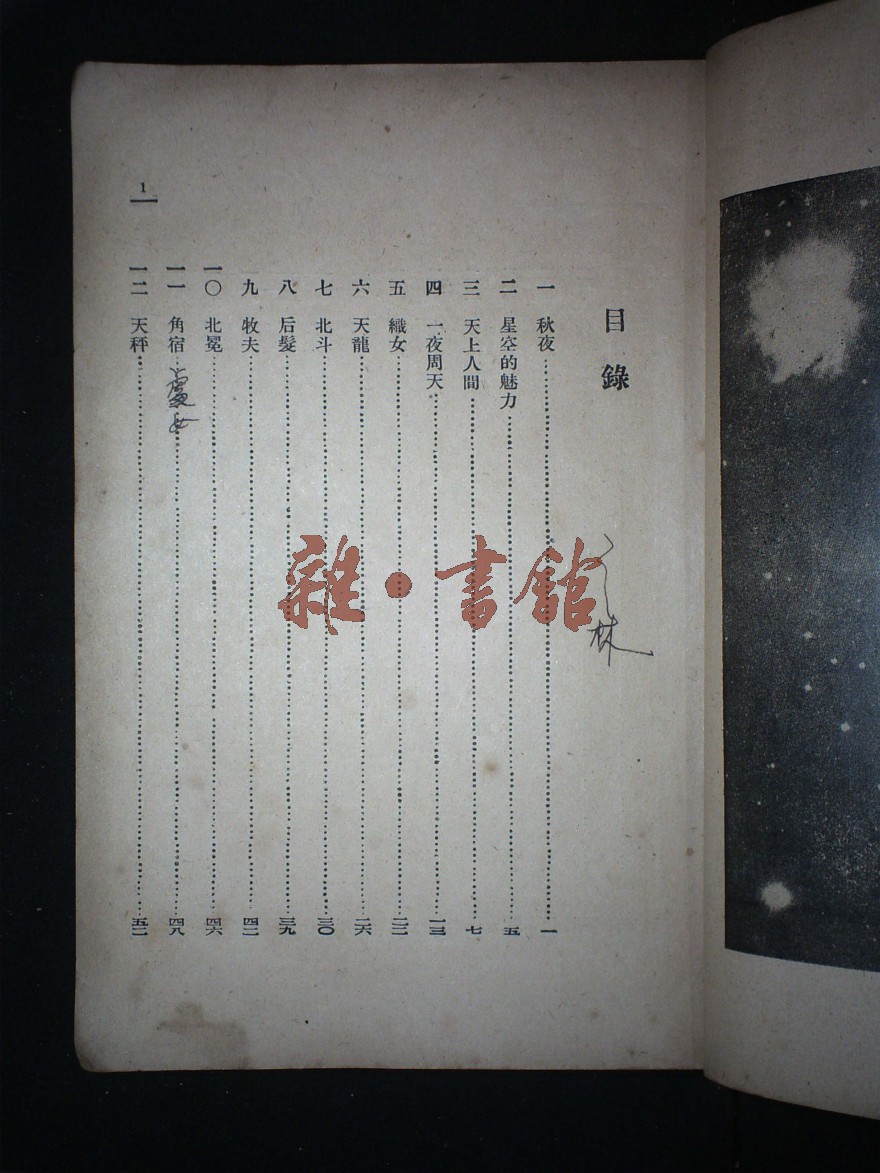 目錄
一 秋夜……一
二 星空的魅力……五
三 天上人間……七
四 一夜周天……一三
五 織女……二二
六 天龍……二六
七 北斗……三〇
八 后髮……三九
九 牧夫……四二
一〇 北冕……四六
一一 角宿……四八
一二 天秤……五二
1
林
雜·書館